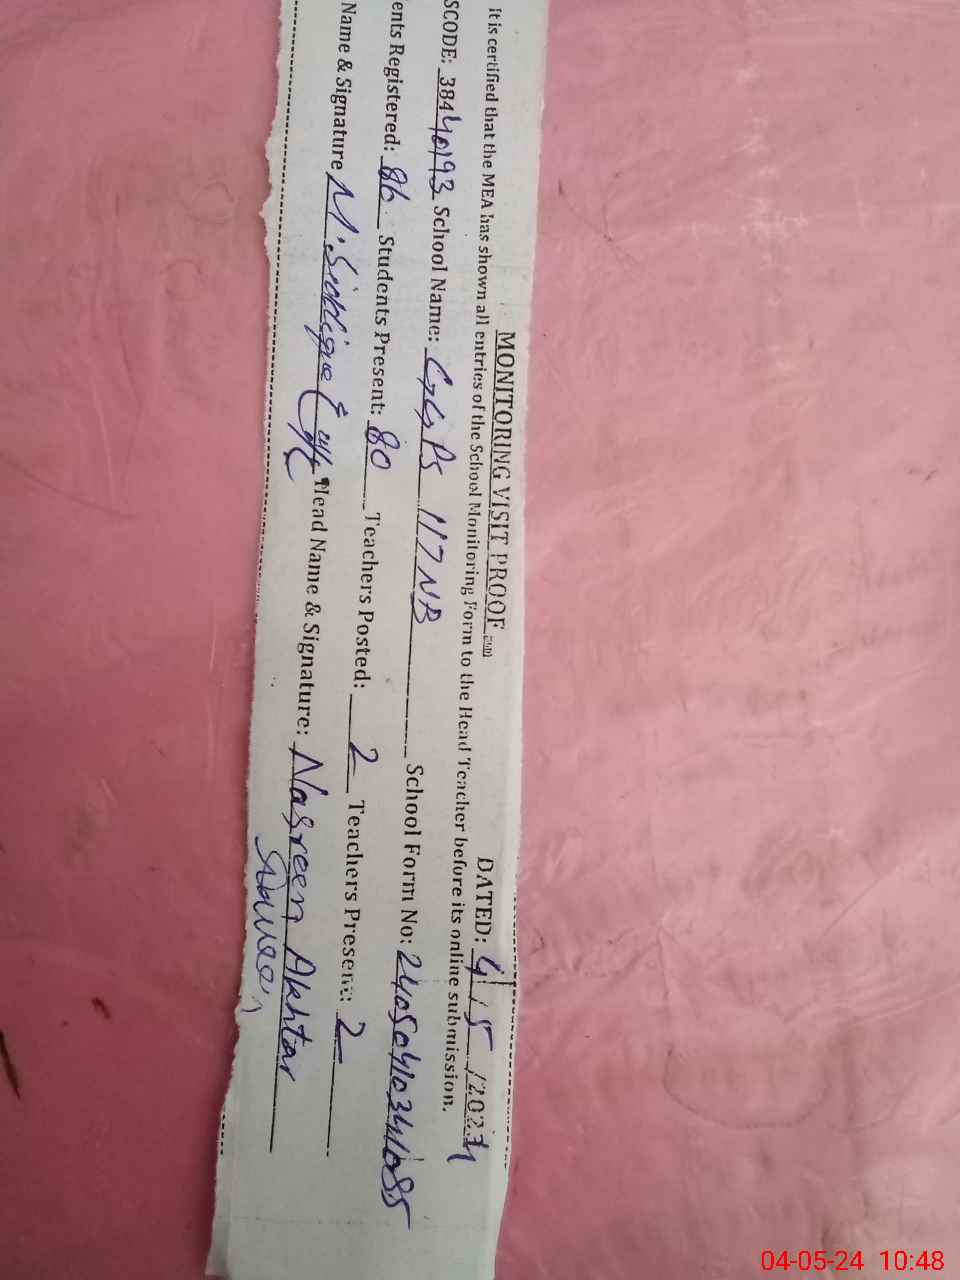 MONITORING VISIT PROOF DATED: 4/5/2024
It is certified that the MEA has shown all entries of the School Monitoring Form to the Head Teacher before its online submission.
SCODE: 38440193 School Name: GGPS 117 NB School Form No:
ents Registered: 86 Students Present: 80 Teachers Posted: 2 Teachers Present: 2
Name & Signature M. Siddique Head Name & Signature: Nasreen Akhtar
04-05-24 10:48